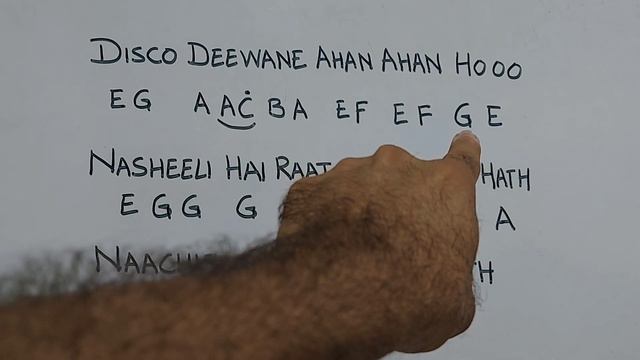 DISCO DEEWANE AHAN AHAN HOOO
EG A AĊ BA EF EF G E
NASHEELI HAI RAAT HATH
E G G G A